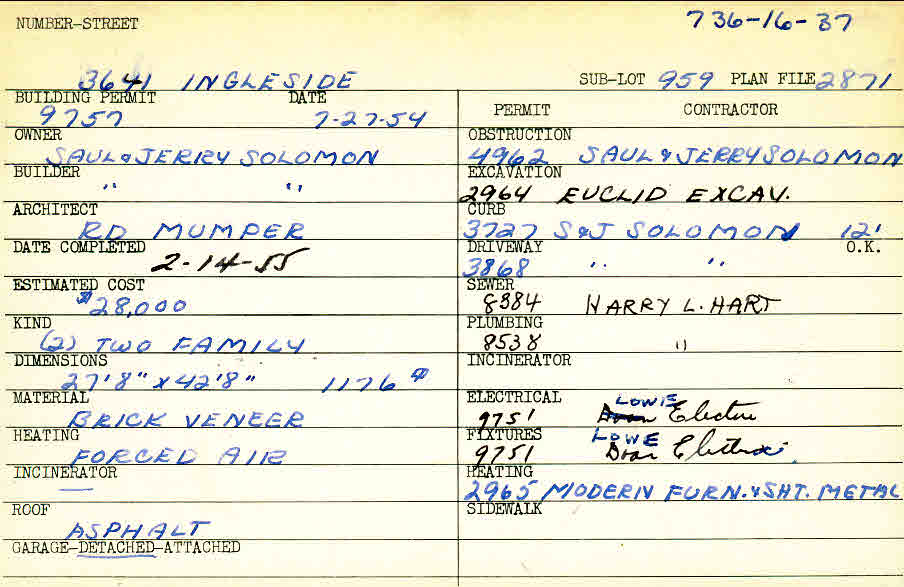 NUMBER-STREET
736-16-37
3641 INGLESIDE
SUB-LOT 959 PLAN FILE 2871
BUILDING PERMIT DATE
9757 7-27-54
OWNER
SAUL & JERRY SOLOMON
BUILDER
" "
ARCHITECT
RD MUMPER
DATE COMPLETED
2-14-55
ESTIMATED COST
$28,000
KIND
(2) TWO FAMILY
DIMENSIONS
27'8" x 42'8" 1176
MATERIAL
BRICK VENEER
HEATING
FORCED AIR
INCINERATOR
—
ROOF
ASPHALT
GARAGE-DETACHED-ATTACHED
PERMIT CONTRACTOR
OBSTRUCTION
4962 SAUL & JERRY SOLOMON
EXCAVATION
2964 EUCLID EXCAV.
CURB
3727 S&J SOLOMON 12'
DRIVEWAY O.K.
3868 " "
SEWER
8384 HARRY L. HART
PLUMBING
8538 "
INCINERATOR
ELECTRICAL
LOWE
9751 Doan Electric
FIXTURES
LOWE
9751 Doan Electric
HEATING
2965 MODERN FURN. & SHT. METAL
SIDEWALK